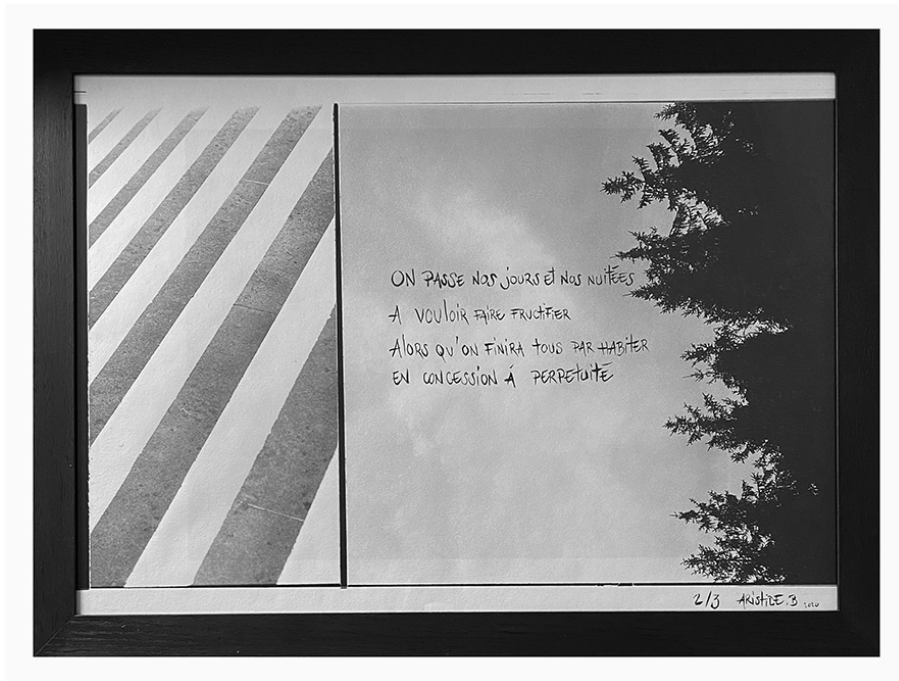 ON PASSE NOS JOURS ET NOS NUITÉES
A VOULOIR FAIRE FRUCTIFIER
ALORS QU'ON FINIRA TOUS PAR HABITER
EN CONCESSION Á PERPETUITÉ
2/3 ARISTIDE.B 2020